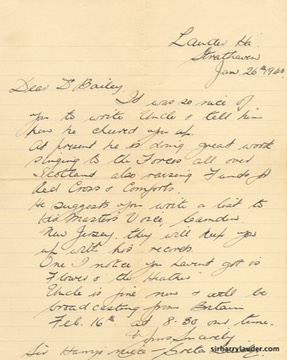 Lauder Ha
Strathaven
Jan 26th 1940
Dear Dr Bailey
It was so nice of
you to write Uncle & tell him
how he cheered you up.
At present he is doing great work
singing to the Forces all over
Scotland also raising Funds for
Red Cross & Comforts.
He suggests you write a list to
His Masters Voice Camden.
New Jersey. they will keep you
up with his records.
One I notice you havent got is
Flower o' the Heather
Uncle is fine now & will be
broadcasting from Britain
Feb. 16th at 8-30 our time.
Yours Sincerely
Sir Harrys niece - Greta
sirharrylauder.com